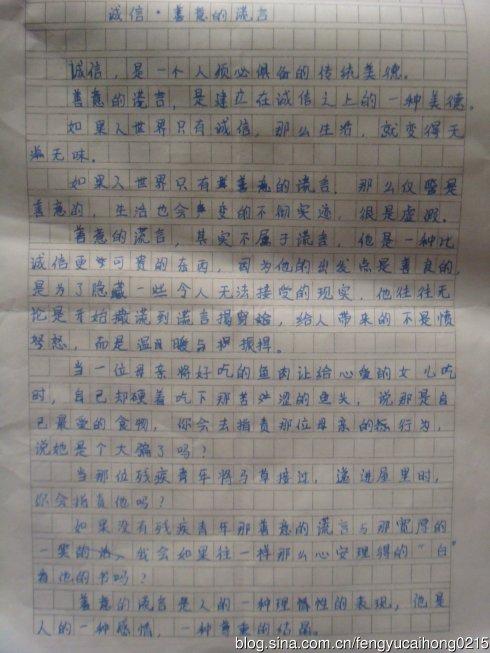 诚信·善意的谎言
诚信，是一个人须必俱备的传统美德。
善意的谎言，是建立在诚信之上的一种美德。
如果人世界只有诚信，那么生活，就变得无
滋无味。
如果人世界只有善意的谎言，那么仅管是
善意的，生活也会变的不彻实迹，很是虚假。
善意的谎言，其实不属于谎言，他是一种比
诚信更可贵的东西，因为他的出发点是善良的，
是为了隐藏一些令人无法接受的现实，他往往无
论是开始撒谎到谎言揭穿始，给人带来的不是愤
怒，而是温暖与振撼。
当一位母亲将好吃的鱼肉让给心爱的女儿吃
时，自己却硬着吃下那苦涩的鱼头，说那是自
己最爱的食物，你会去指责那位母亲的行为，
说她是个大骗子吗？
当那位残疾青年将弓草接过，递进屋里时，
你会指责他吗？
如果没有残疾青年那善意的谎言与那宽厚的
一笑的话，我会如果往一样那么心安理得的“白”
看他的书吗？
善意的谎言是人的一种理性的表现，他是
人的一种感情，一种尊重的结晶。
blog.sina.com.cn/fengyucaihong0215